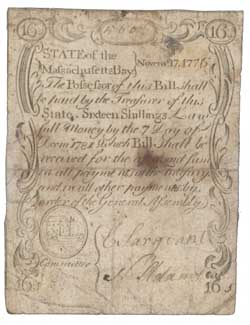 16s 16s
STATE of the
Massachusetts Bay. Novem. 17. 1776
The Possessor of this Bill shall
be paid by the Treasurer of this
State, Sixteen Shillings Law-
full Money by the 7 Day of
Decm 1781 Which Bill Shall be
received for the aforesaid sum
in all payments at the treasury
and in all other payments by
order of the General Assembly
Sargeant
Committee
16s 16s